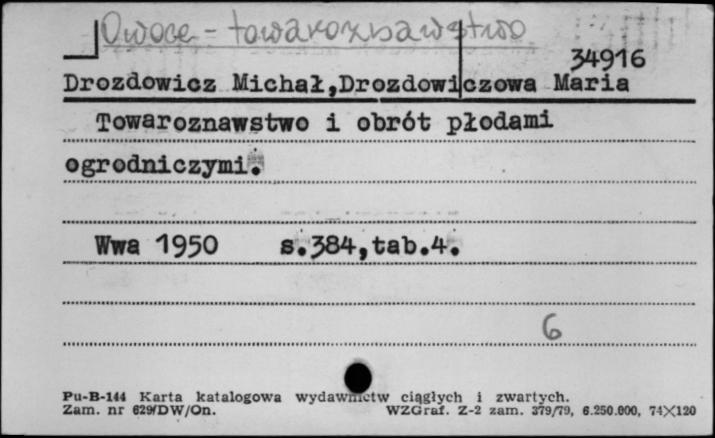 Owoce - towaroznawstwo
34916
Drozdowicz Michał,Drozdowiczowa Maria
Towaroznawstwo i obrót płodami
ogrodniczymi.
Wwa 1950 s.384,tab.4.
6
Pu-B-144 Karta katalogowa wydawnictw ciągłych i zwartych.
Zam. nr 629/DW/On. WZGraf. Z-2 zam. 379/79, 6.250.000, 74×120